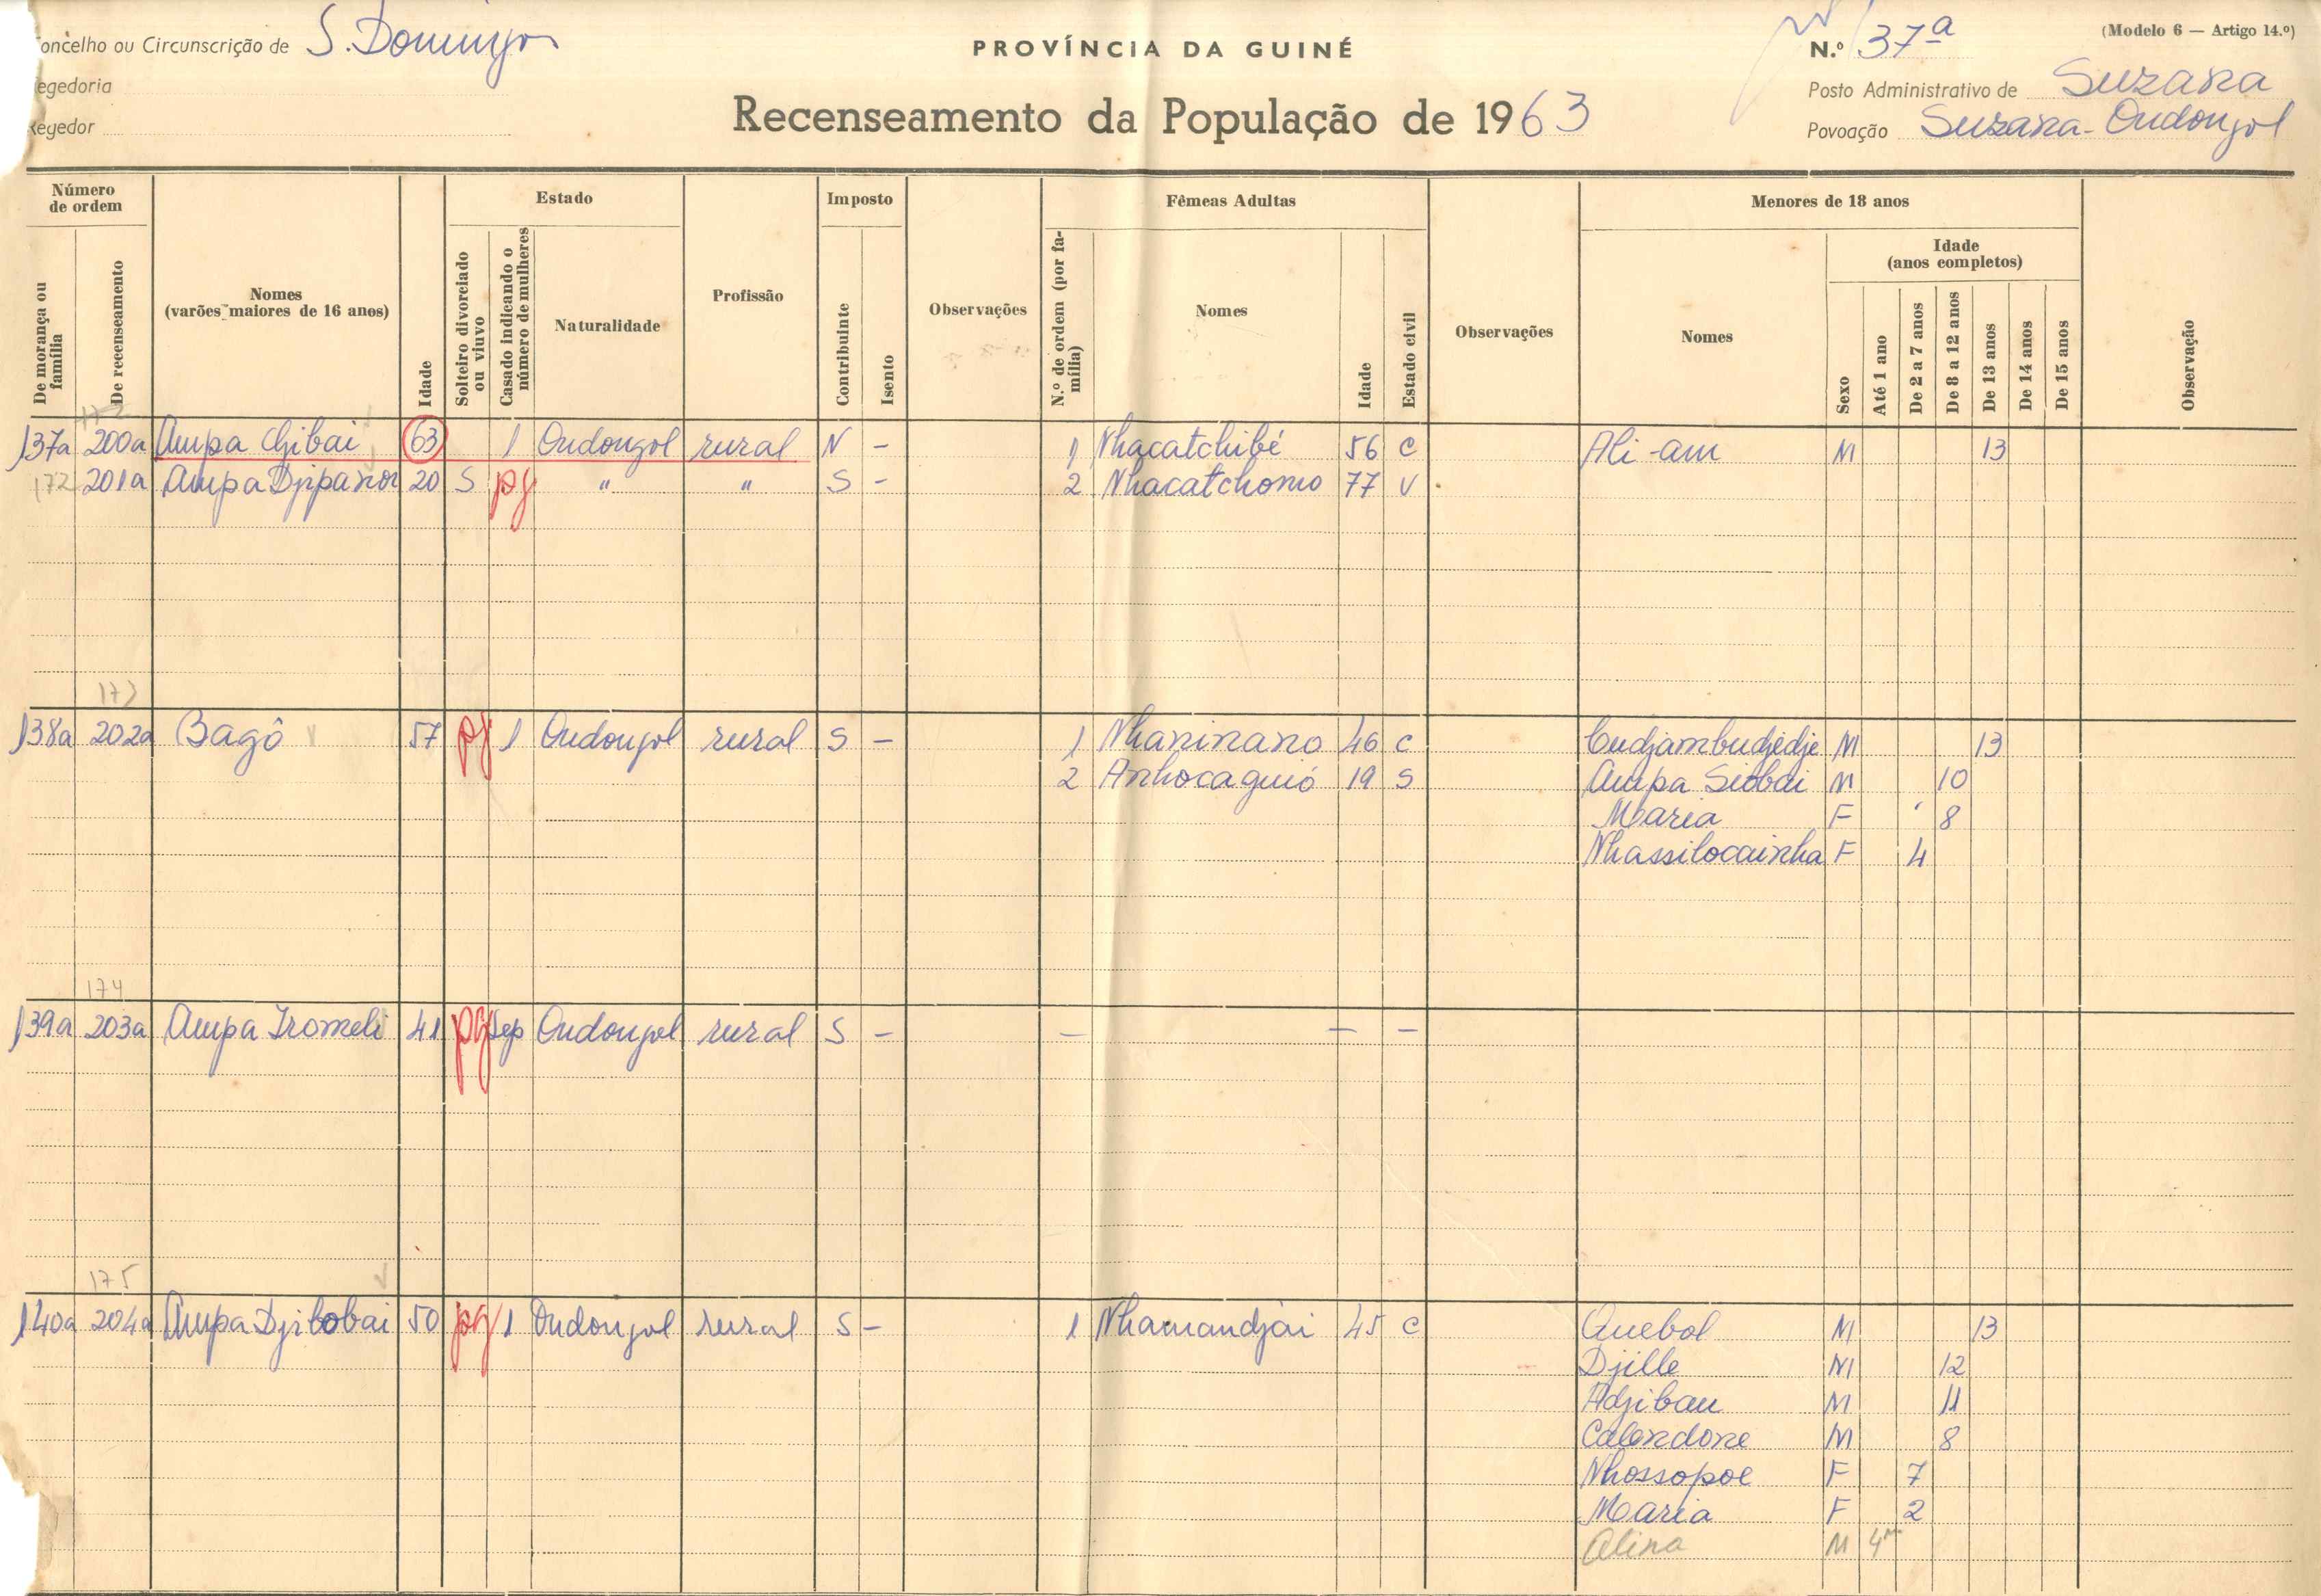 oncelho ou Circunscrição de S. Domingos
PROVÍNCIA DA GUINÉ
N.º 37ª
(Modelo 6 — Artigo 14.º)
egedoria
Posto Administrativo de Suzana
egedor
Recenseamento da População de 1963
Povoação Suzana-Oudongol
Número de ordem
Estado
Imposto
Fêmeas Adultas
Menores de 18 anos
De morança ou família
De recenseamento
Nomes (varões maiores de 16 anos)
Idade
Solteiro divorciado ou viuvo
Casado indicando o número de mulheres
Naturalidade
Profissão
Contribuinte
Isento
Observações
N.º de ordem (por família)
Nomes
Idade
Estado civil
Observações
Nomes
Sexo
Idade (anos completos)
Até 1 ano
De 2 a 7 anos
De 8 a 12 anos
De 13 anos
De 14 anos
De 15 anos
Observação
137a 200a Ampa Gibai 63 1 Oudongol rural N - 1 Nhacatchibé 56 C Ali-am M 13
172 201a Ampa Djipanor 20 S pg " " S - 2 Nhacatchomo 77 V
173
138a 202a Bagô 57 pg 1 Oudongol rural S - 1 Nhaninano 46 C Cudjambudjedje M 13
2 Anhocaguió 19 S Ampa Siobai M 10
Maria F 8
Nhassilocainha F 4
174
139a 203a Ampa Iromeli 41 pg sep Oudongol rural S - - - -
175
140a 204a Ampa Djibobai 50 pg 1 Oudongol rural S - 1 Nhamandjai 45 C Quebol M 13
Djille M 12
Adjibau M 11
Calendone M 8
Nhossopoe F 7
Maria F 2
Alina M 4m